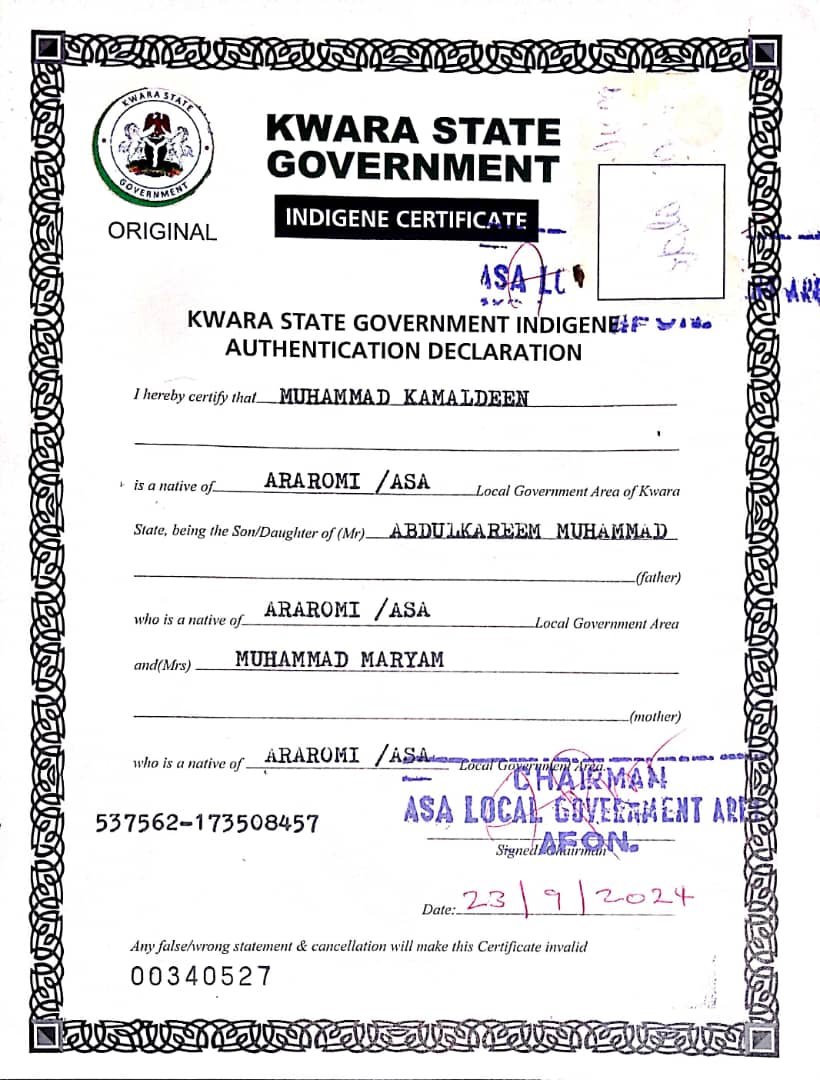 KWARA STATE
GOVERNMENT
KWARA STATE
GOVERNMENT
INDIGENE CERTIFICATE
ORIGINAL
ASA
KWARA STATE GOVERNMENT INDIGENE
AUTHENTICATION DECLARATION
I hereby certify that MUHAMMAD KAMALDEEN
is a native of ARAROMI /ASA Local Government Area of Kwara
State, being the Son/Daughter of (Mr) ABDULKAREEM MUHAMMAD
(father)
who is a native of ARAROMI /ASA Local Government Area
and(Mrs) MUHAMMAD MARYAM
(mother)
who is a native of ARAROMI /ASA Local Government Area.
CHAIRMAN
537562-173508457 ASA LOCAL GOVERNMENT AREA
AFON.
Signed/Chairman
Date: 23/9/2024
Any false/wrong statement & cancellation will make this Certificate invalid
00340527